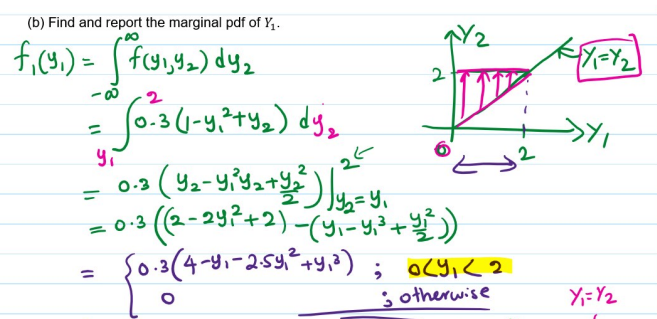 (b) Find and report the marginal pdf of Y₁.
f₁(y₁) = ∫_{-∞}^{∞} f(y₁,y₂) dy₂
= ∫_{y₁}^{2} 0.3(1-y₁²+y₂) dy₂
= 0.3 (y₂-y₁²y₂+y₂²/2) |_{y₂=y₁}^{2}
= 0.3 ((2-2y₁²+2)-(y₁-y₁³+y₁²/2))
= { 0.3(4-y₁-2.5y₁²+y₁³) ; 0<y₁<2
0 ; otherwise
Y₂
Y₁=Y₂
2
Y₁
0
2
Y₁=Y₂